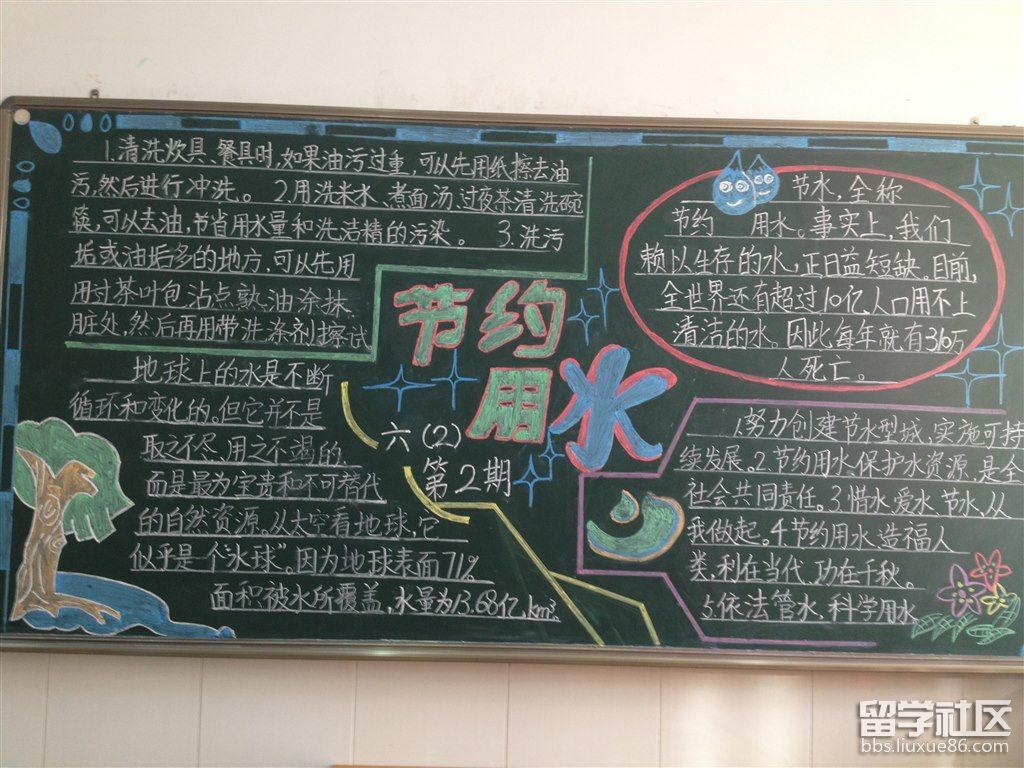 1.清洗炊具、餐具时,如果油污过重,可以先用纸擦去油
污,然后进行冲洗。 2.用洗米水、煮面汤、过夜茶清洗碗
筷,可以去油,节省用水量和洗洁精的污染。 3.洗污
垢或油垢多的地方,可以先用
用过茶叶包沾点熟油涂抹
脏处,然后再用带洗涤剂擦试
地球上的水是不断
循环和变化的。但它并不是
取之不尽,用之不竭的,
而是最为宝贵和不可替代
的自然资源,从太空看地球,它
似乎是个"水球"。因为地球表面71%
面积被水所覆盖,水量为13.68亿km³
节约
用水
六(2)
第2期
节水,全称
节约 用水。事实上,我们
赖以生存的水,正日益短缺。目前,
全世界还有超过10亿人口用不上
清洁的水。因此每年就有310万
人死亡。
1.努力创建节水型城,实施可持
续发展。2.节约用水、保护水资源,是全
社会共同责任。3.惜水、爱水、节水,从
我做起。4.节约用水、造福人
类,利在当代,功在千秋。
5.依法管水、科学用水
留学社区
bbs.liuxue86.com